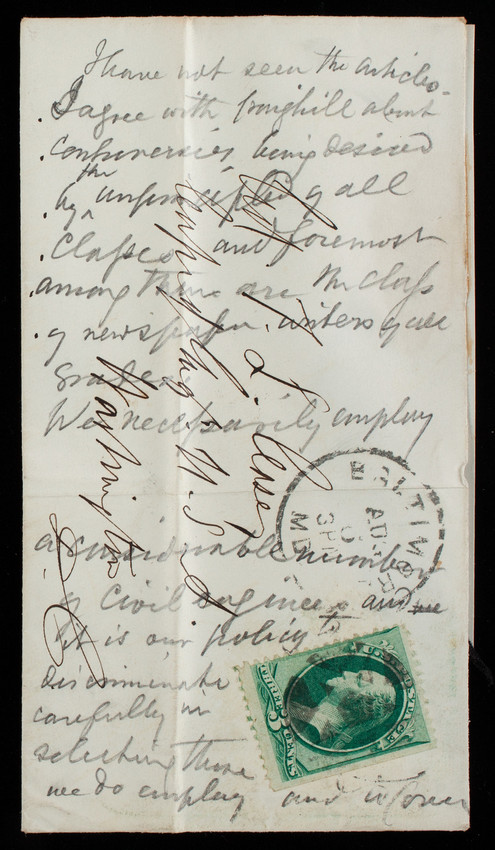 I have not seen the articles.
I agree with Craighill about
controversies being desired
by the unprincipled of all
Classes and foremost
among them are the Class
of newspaper writers of all
grades.
We necessarily employ
a considerable number
of Civil Engineers and
it is our policy to
discriminate
carefully in
selecting those
we do employ and
Gen. T. L. Casey
Corps of Eng'rs U.S.A.
Washington
D.C.
BALTIMORE
MD